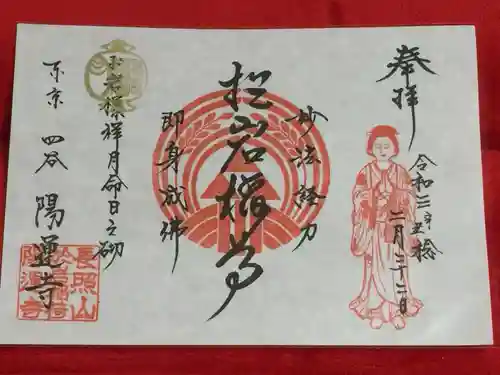 奉拝
令和三辛丑稔
二月二十二日
妙法経力
即身成佛
お岩様祥月命日之砌
東京 四谷 陽運寺
長照山
陽運寺